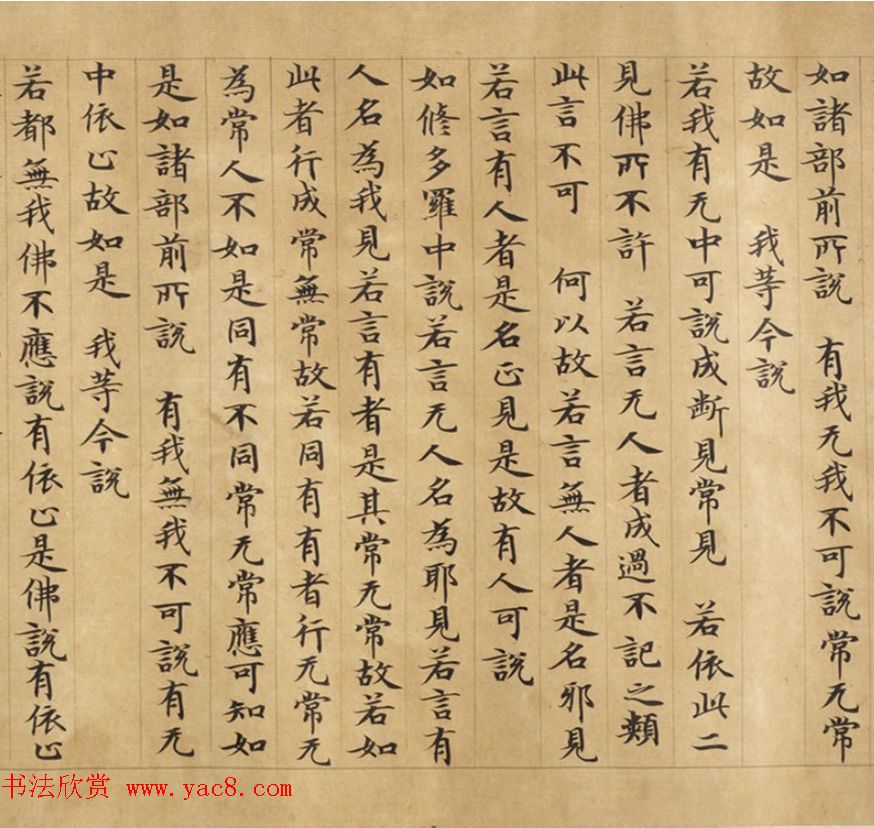 如諸部前所說 有我无我不可說常无常
故如是 我等今說
若我有无中可說成断見常見 若依此二
見佛所不許 若言无人者成過不記之類
此言不可 何以故若言無人者是名邪見
若言有人者是名正見是故有人可說
如修多羅中說若言无人名為耶見若言有
人名為我見若言有者是其常无常故若如
此者行成常無常故若同有有者行无常无
為常人不如是同有不同常无常應可知如
是如諸部前所說 有我無我不可說有无
中依止故如是 我等今說
若都無我佛不應說有依止是佛說有依止
书法欣赏 www.yac8.com